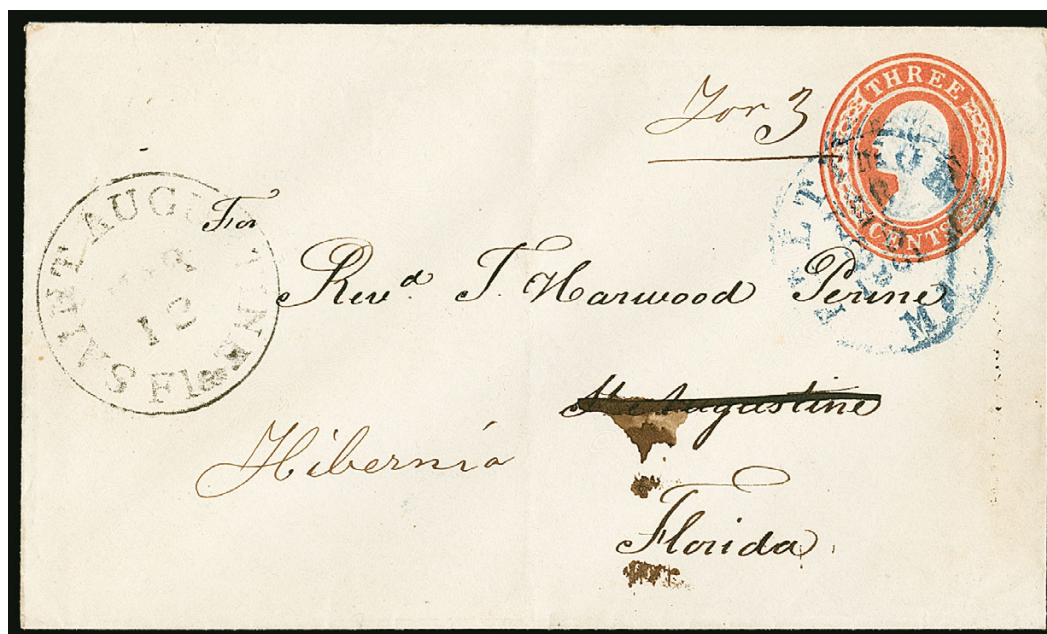 THREE
CENTS
For 3
SAINT AUGUSTINE
12
Fla
For
Revd J. Harwood Perine
St Augustine
Hibernia
Florida